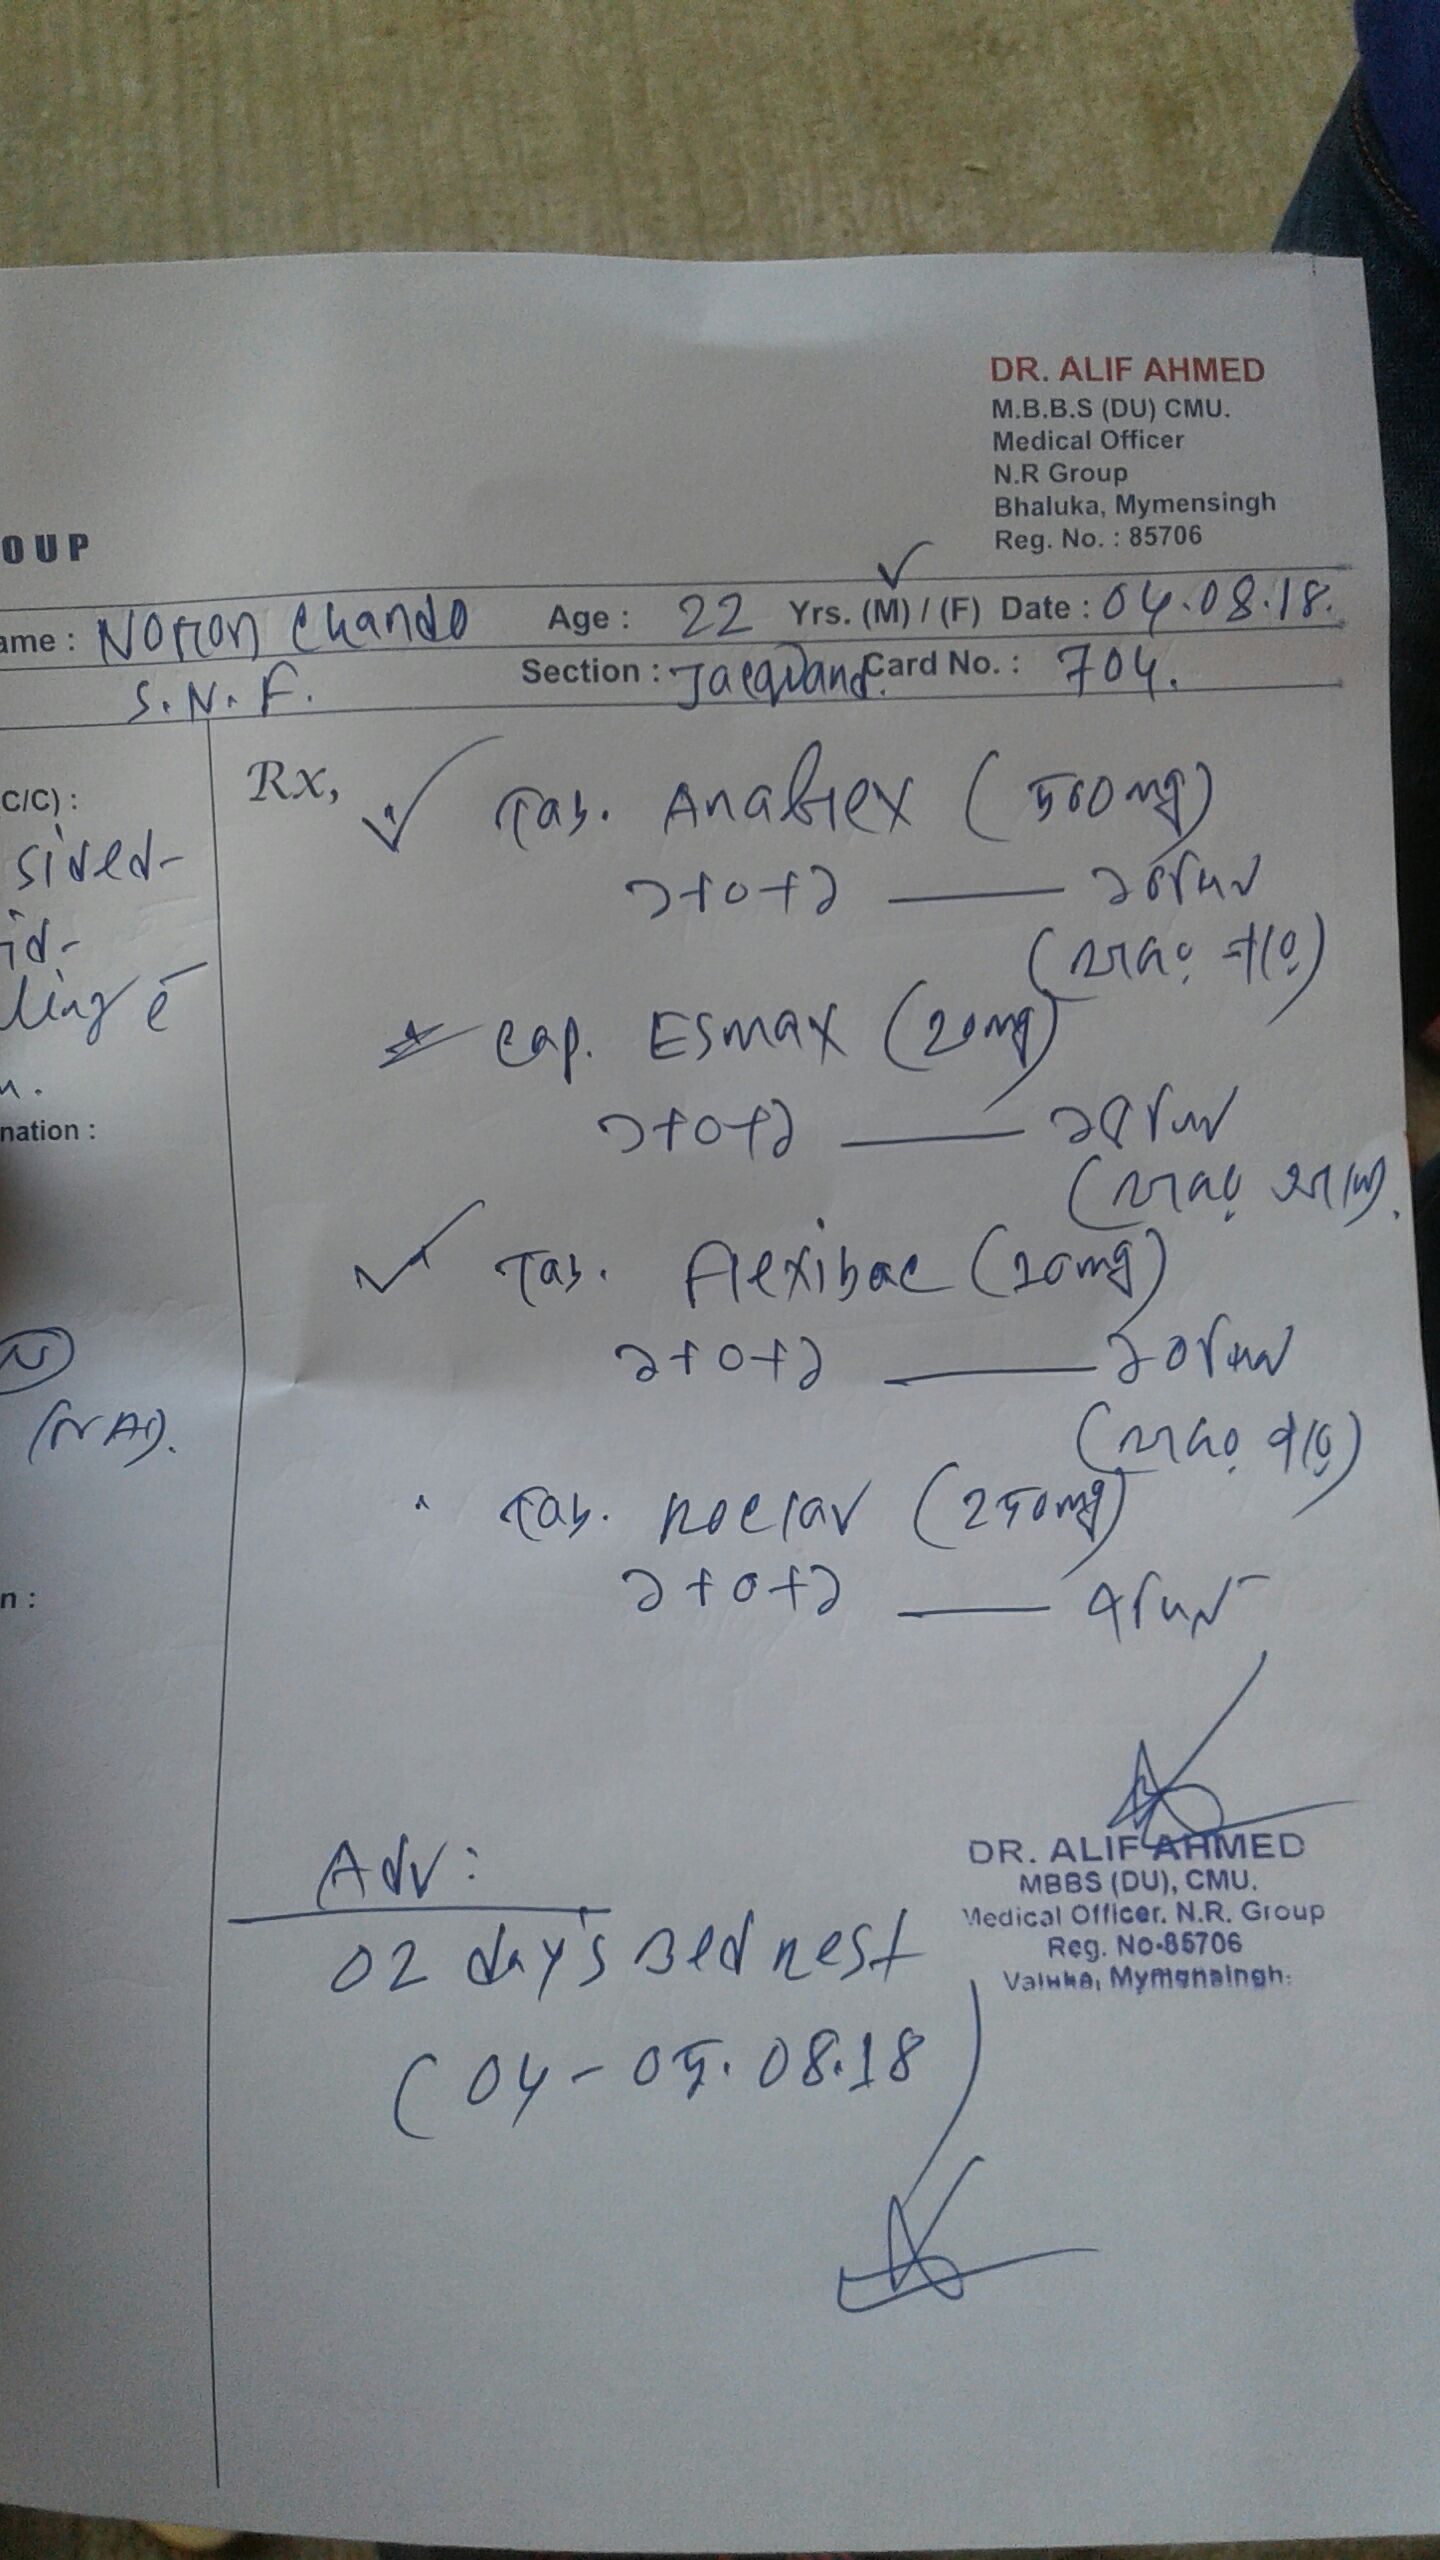 DR. ALIF AHMED
M.B.B.S (DU) CMU.
Medical Officer
N.R Group
Bhaluka, Mymensingh
Reg. No. : 85706
OUP
ame : Noton Chando Age : 22 Yrs. (M) / (F) Date : 04.08.18.
S.N.F. Section : Jacquard Card No. : 704.
C/C) :
sided-
ling ē
nation :
(NAD).
n :
Rx,
Tab. Anaflex (500mg)
১+০+১ —— ১০দিন
(খাবার পর)
Cap. Esmax (20mg)
১+০+১ ——
(খাবার আগে).
Tab. Flexibac (10mg)
১+০+১ —— ১০দিন
(খাবার পর)
Tab. Roclav (250mg)
১+০+১ —— ৭দিন
DR. ALIF AHMED
MBBS (DU), CMU.
Medical Officer. N.R. Group
Reg. No-85706
Valuka, Mymensingh.
Adv:
02 day's Bed rest
(04-05.08.18)